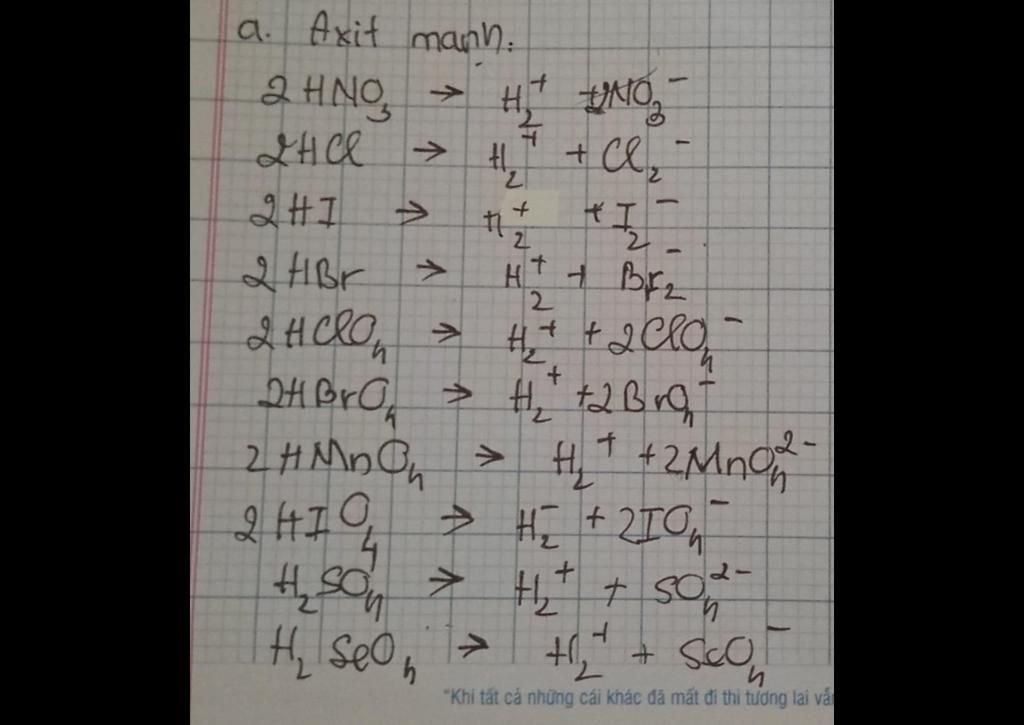 a. Axit mạnh.
2HNO₃ → H₂⁺ + 2NO₃⁻
2HCl → H₂⁺ + Cl₂⁻
2HI → H₂⁺ + I₂⁻
2HBr → H₂⁺ + Br₂⁻
2HClO₄ → H₂⁺ + 2ClO₄⁻
2HBrO₄ → H₂⁺ + 2BrO₄⁻
2HMnO₄ → H₂⁺ + 2MnO₄²⁻
2HIO₄ → H₂⁻ + 2IO₄⁻
H₂SO₄ → H₂⁺ + SO₄²⁻
H₂SeO₄ → H₂⁺ + SeO₄⁻
"Khi tất cả những cái khác đã mất đi thì tương lai vẫ